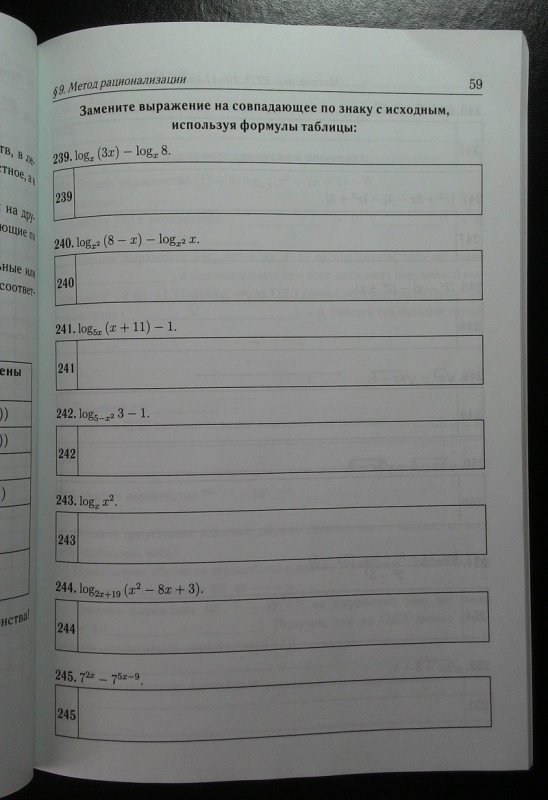 §9. Метод рационализации
59
Замените выражение на совпадающее по знаку с исходным,
используя формулы таблицы:
239. logₓ (3x) − logₓ 8.
239
240. log_{x²} (8 − x) − log_{x²} x.
240
241. log_{5x} (x + 11) − 1.
241
242. log_{5−x²} 3 − 1.
242
243. logₓ x².
243
244. log_{2x+19} (x² − 8x + 3).
244
245. 7^{2x} − 7^{5x−9}.
245